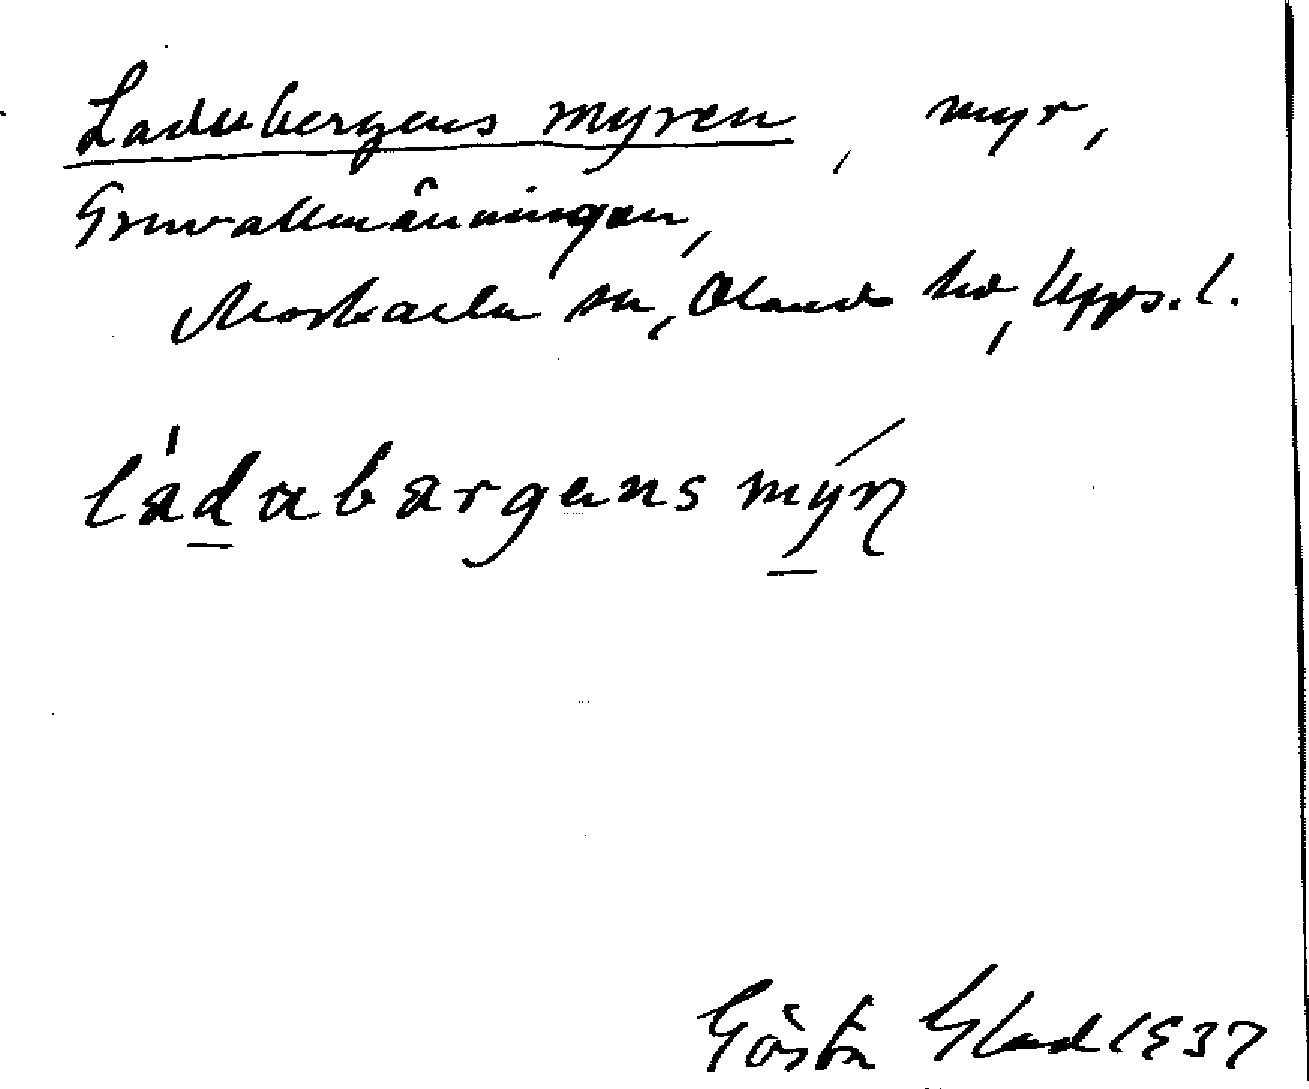 Ladubergens myren, myr,
Gruvallmänningen,
Morkarla sn, Olands hd, Upps. l.
ládubärgens mýrn
Gösta Glad 1937